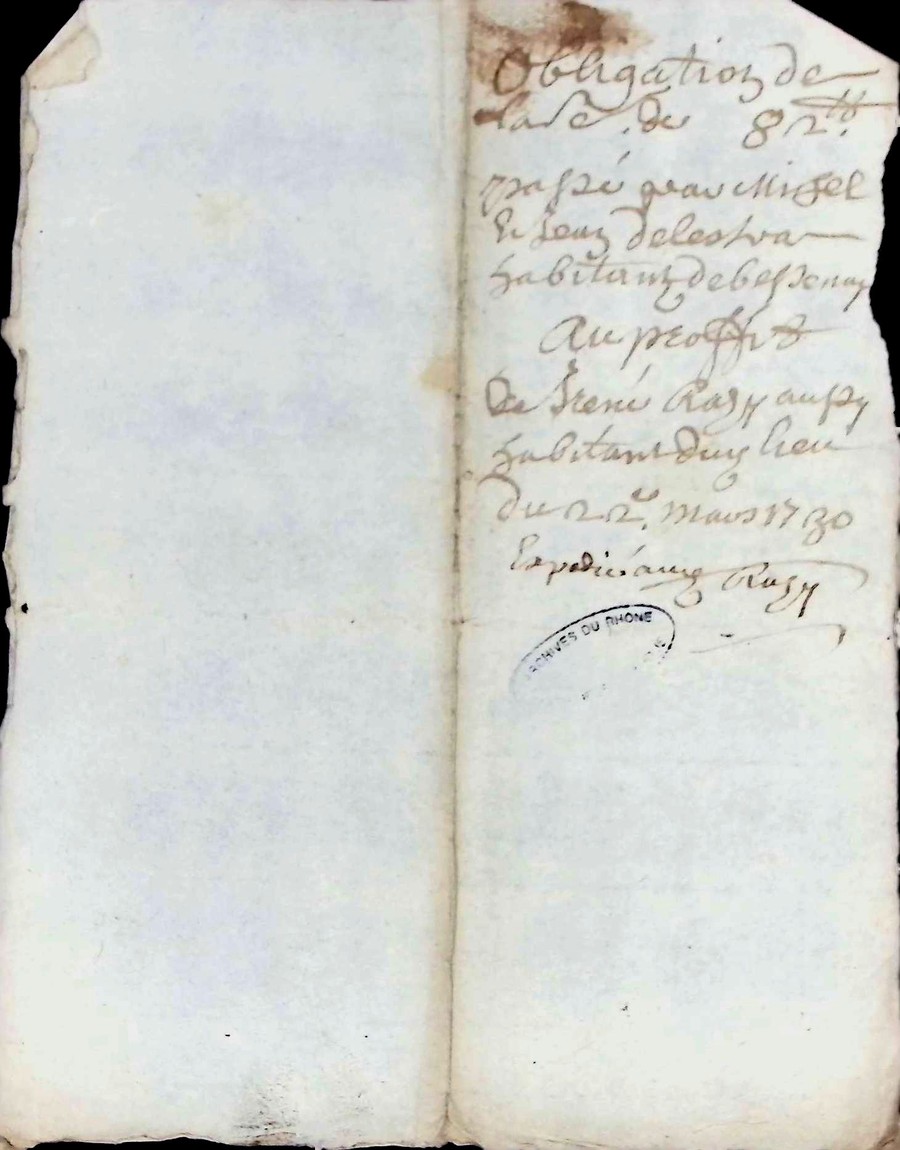 Obligation de
la Se. de 82tt.
passé par Michel
Et Jean delestra
habitant de bessenay
Au proffit
de Irené Ragy aussy
habitant duy lieu
du 22e. mars 1730
Expedié Ragy
ARCHIVES DU RHONE